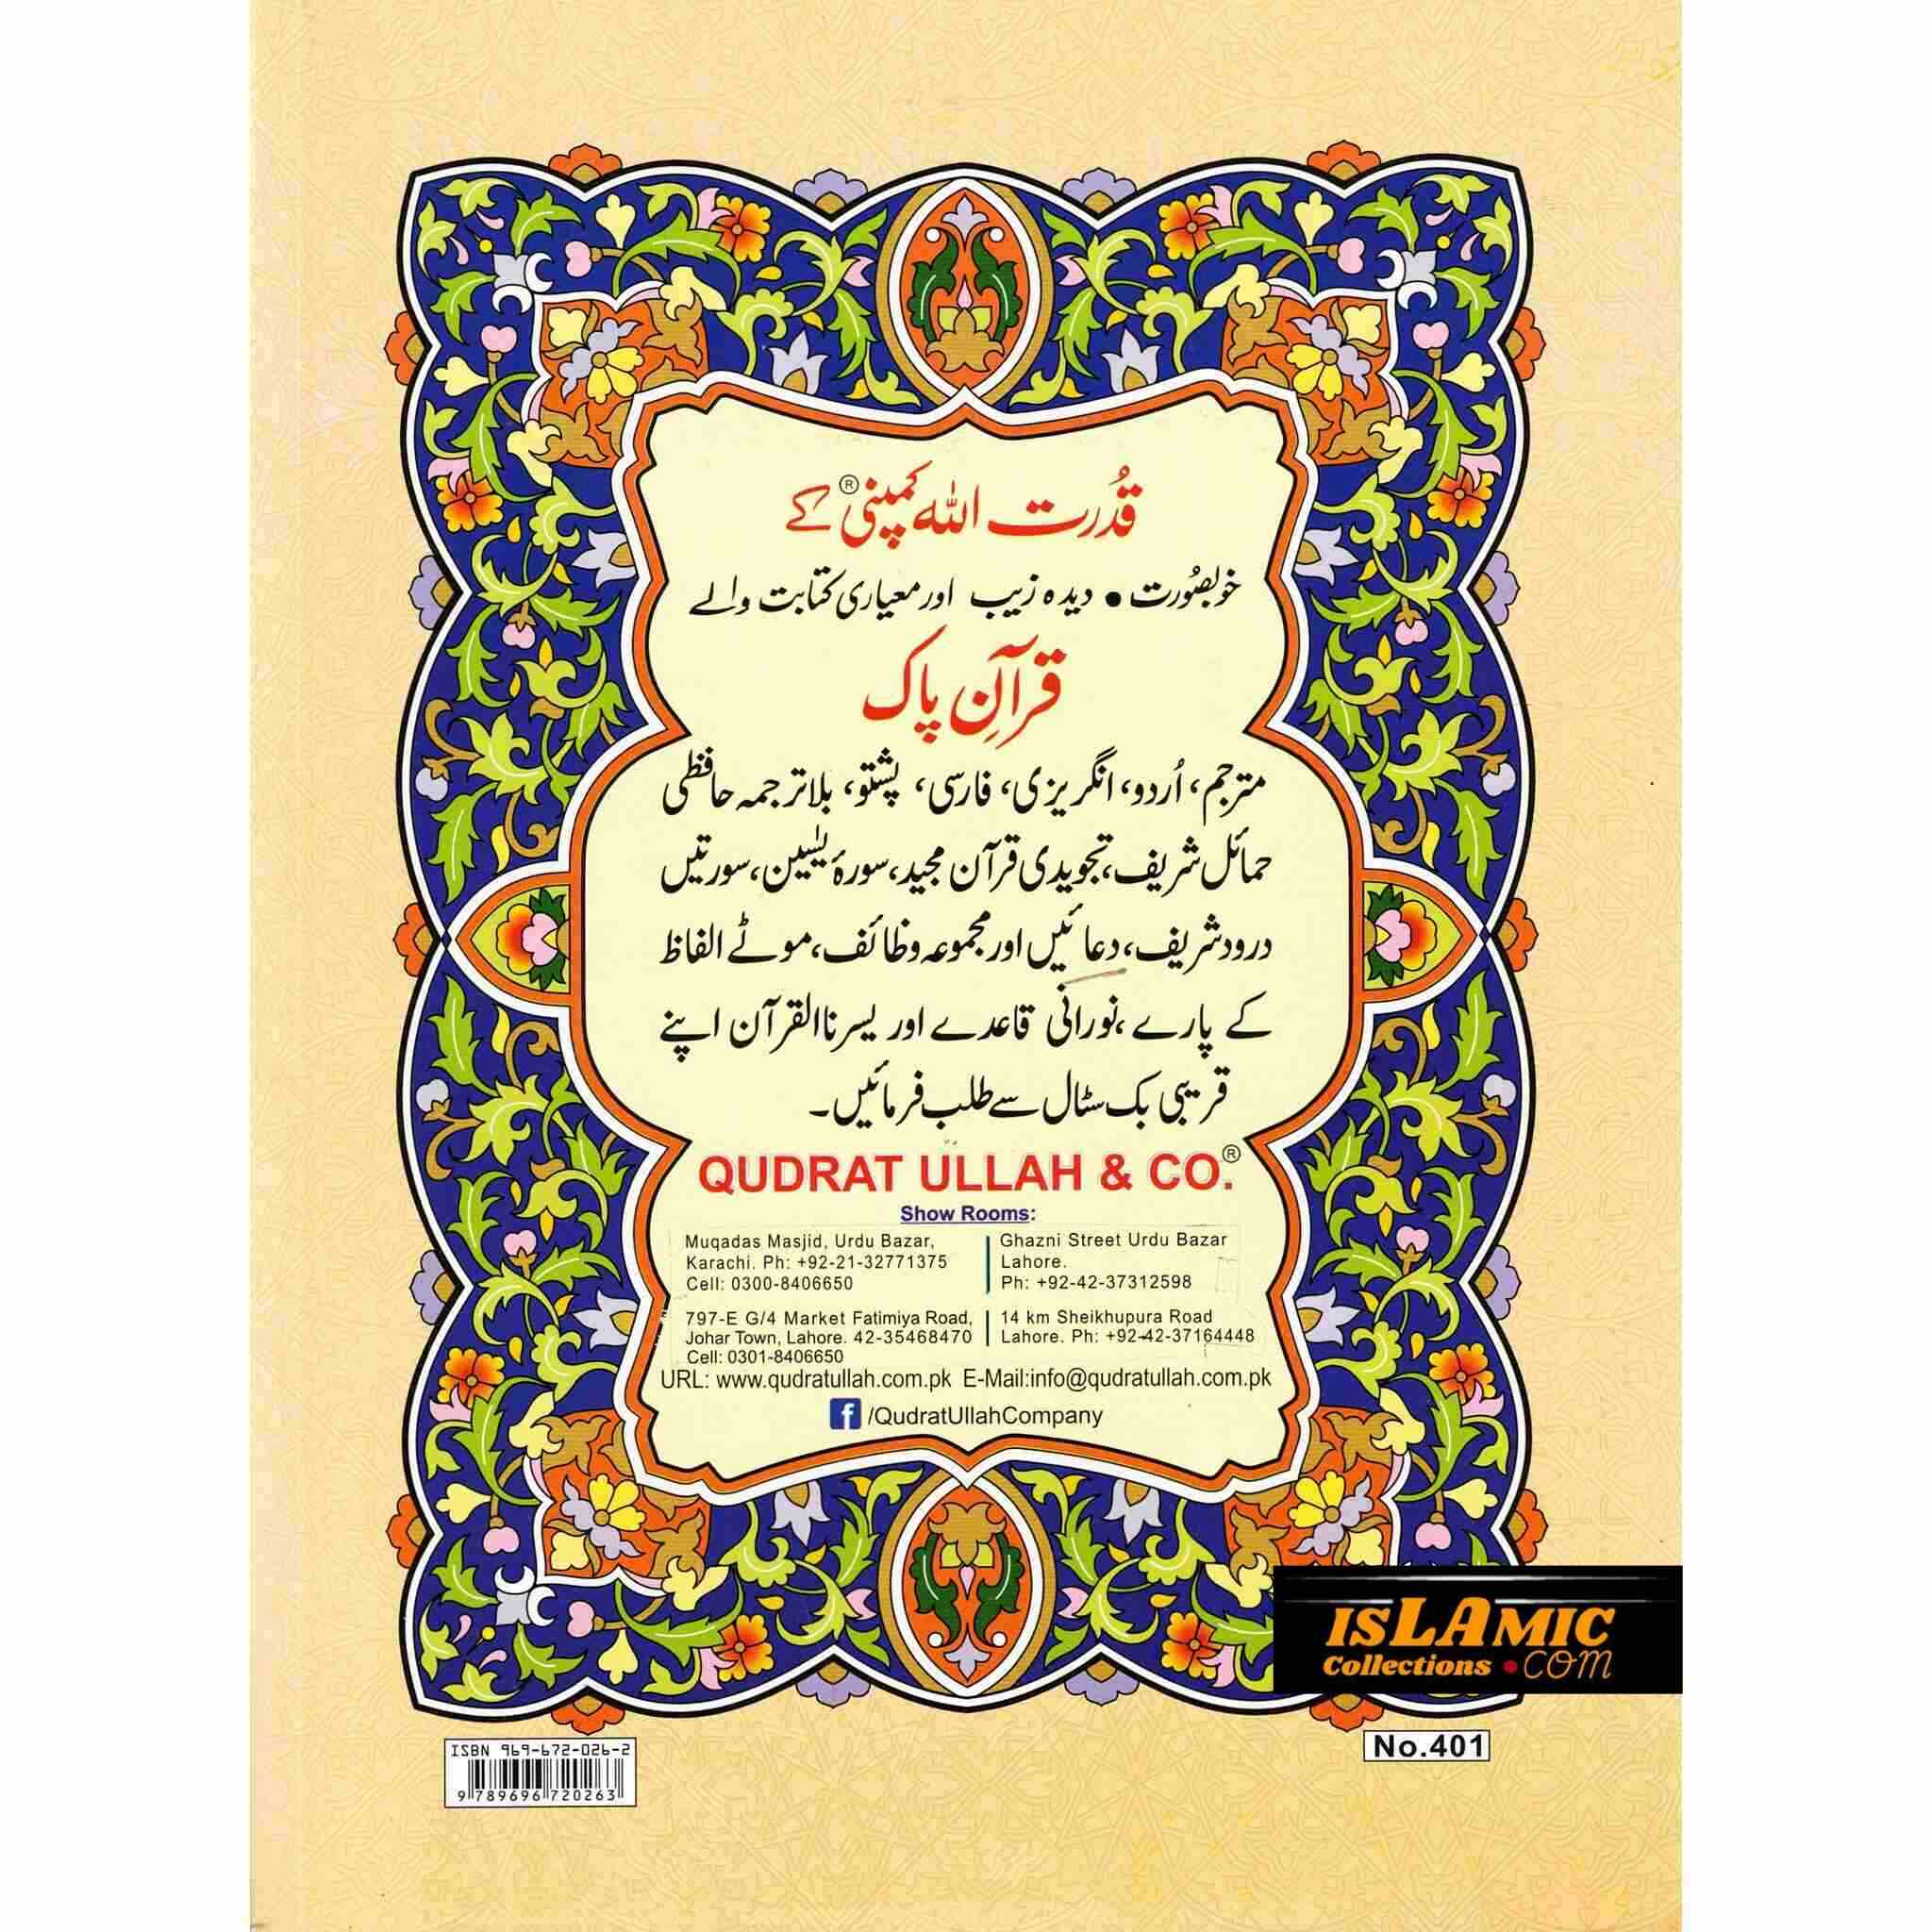 قُدرت اللہ کمپنی® کے
خوبصُورت • دیدہ زیب اور معیاری کتابت والے
قرآنِ پاک
مترجم، اُردو، انگریزی، فارسی، پشتو، بلا ترجمہ حافظی
حمائل شریف، تجویدی قرآن مجید، سورۂ یٰسین، سورتیں
درود شریف، دعائیں اور مجموعہ وظائف، موٹے الفاظ
کے پارے، نورانی قاعدے اور یسرنا القرآن اپنے
قریبی بک سٹال سے طلب فرمائیں۔
QUDRAT ULLAH & CO.®
Show Rooms:
Muqadas Masjid, Urdu Bazar,
Karachi. Ph: +92-21-32771375
Cell: 0300-8406650
Ghazni Street Urdu Bazar
Lahore.
Ph: +92-42-37312598
797-E G/4 Market Fatimiya Road,
Johar Town, Lahore. 42-35468470
Cell: 0301-8406650
14 km Sheikhupura Road
Lahore. Ph: +92-42-37164448
URL: www.qudratullah.com.pk E-Mail:info@qudratullah.com.pk
f /QudratUllahCompany
ISLAMIC
Collections .COM
No.401
ISBN 969-672-026-2
9 789696 720263